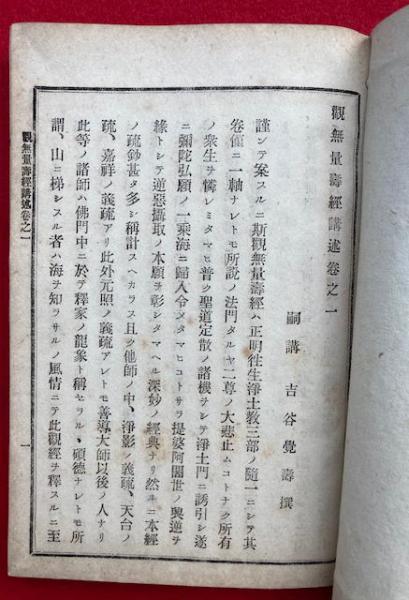 觀無量壽經講述卷之一
嗣講 吉谷覺壽 撰
謹ンテ案スルニ斯觀無量壽經ハ正明徃生淨土教三部ノ隨一ニシテ其
卷僅ニ一軸ナレトモ所説ノ法門タルヤ二尊ノ大悲止ムコトナク所有
ノ衆生ヲ憐レミタマヒ普ク聖道定散ノ諸機ヲシテ淨土門ニ誘引シ遂
ニ彌陀弘願ノ一乘海ニ歸入令メタマヒコトサラ提婆阿闍世ノ興逆ヲ
縁トシテ逆惡攝取ノ本願ヲ彰シタマヘル深妙ノ經典ナリ然ルニ本經
ノ疏鈔甚タ多シ稱計スヘカラス且ク他師ノ中、淨影ノ義疏、天台ノ
疏、嘉祥ノ義疏アリ此外元照ノ義疏アレトモ善導大師以後ノ人ナリ
此等ノ諸師ハ佛門中ニ於テ釋家ノ龍象ト稱セラル、碩德ナレトモ所
謂、山ニ梯シスル者ハ海ヲ知ラサルノ風情ニテ此觀經ヲ釋スルニ至
觀無量壽經講述卷之一
一